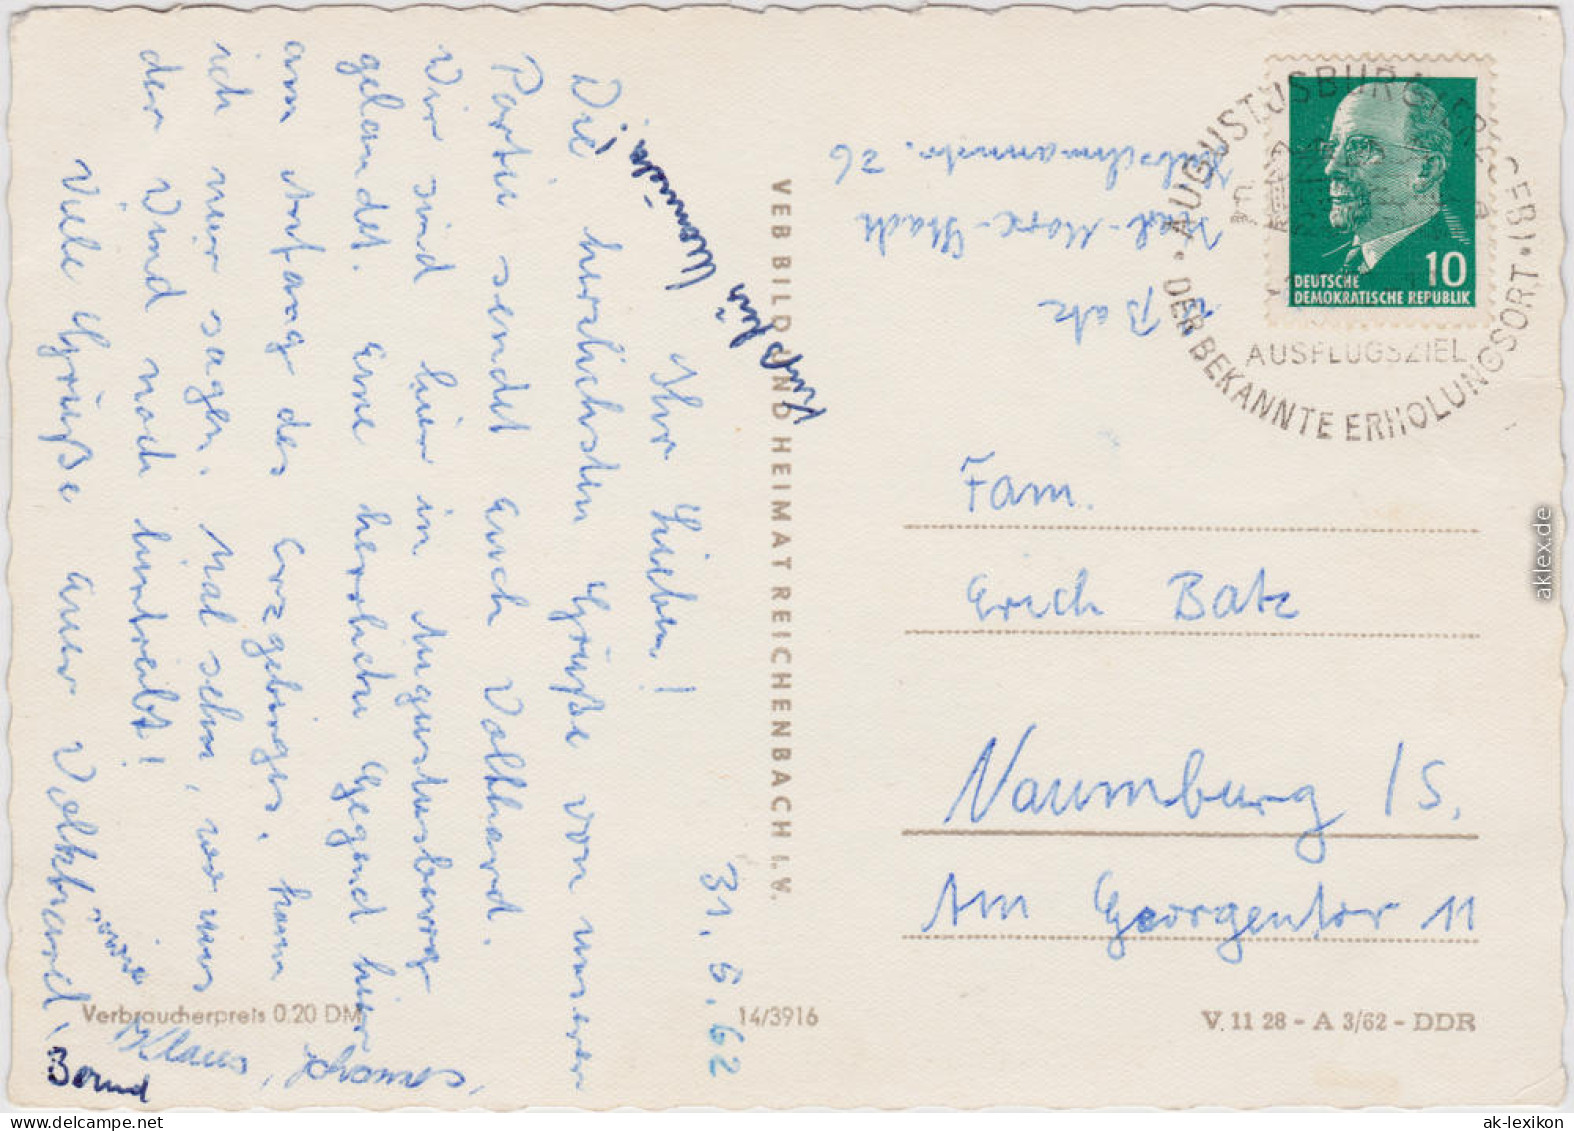 31. 5. 62
Ihr Lieben!
Die herzlichsten Grüße von unserer
Partie sendet euch Volkhard.
Wir sind hier in Augustusburg
gelandet. Eine herrliche Gegend hier
am Anfang des Erzgebirges. Kann
ich nur sagen. Mal sehn, wo uns
der Wind noch hintreibt!
Viele Grüße euer Volkhard,
sowie
Klaus, Johannes,
Bernd
VEB BILD UND HEIMAT REICHENBACH I.V.
Verbraucherpreis 0.20 DM
14/3916
V. 11 28 - A 3/62 - DDR
Batz
Karl-Marx-Stadt
AUGUSTUSBURG (ERZGEB)
DER BEKANNTE ERHOLUNGSORT
AUSFLUGSZIEL
10
DEUTSCHE
DEMOKRATISCHE REPUBLIK
Fam.
Erich Batz
Naumburg /S.
Am Georgentor 11
aklex.de
ak-lexikon